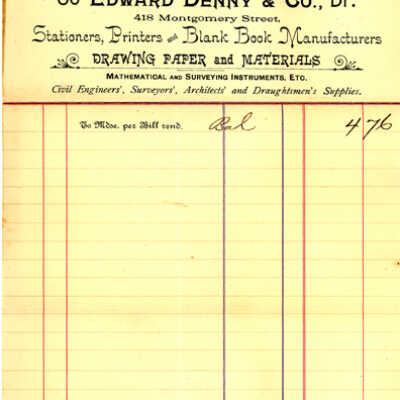 To EDWARD DENNY & CO., Dr.
418 Montgomery Street,
Stationers, Printers and Blank Book Manufacturers
DRAWING PAPER and MATERIALS
MATHEMATICAL AND SURVEYING INSTRUMENTS, ETC.
Civil Engineers', Surveyors', Architects' and Draughtsmen's Supplies.
To Mdse. per Bill rend. Bal 4 76